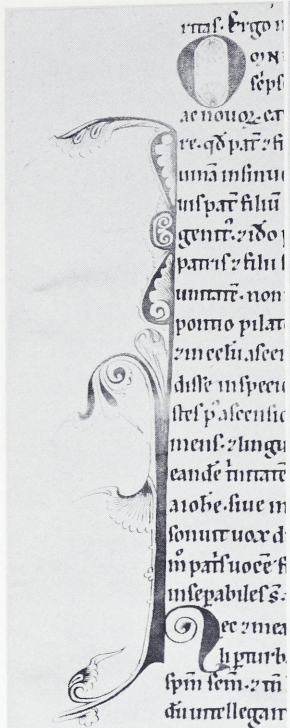 ritas. Ergo
O
sēps
ac nouoꝝ
re. qd̄ pat̄ ⁊ fi
unā insinu
uis pat̄ filiū
⁊ iō p
patris ⁊ filii
unitatē. non
pontio pilat
⁊ in celū ascen
disse in specie
stes p ascensio
mens. ⁊ lingu
eandē t̄nitatē
a iohe. siue in
sonuit uox d
pat̄s uocē
insepabiles s̄.
Nec ⁊ mea
pturb
sp̄m sem̄. ⁊ tn̄
diu intellegant